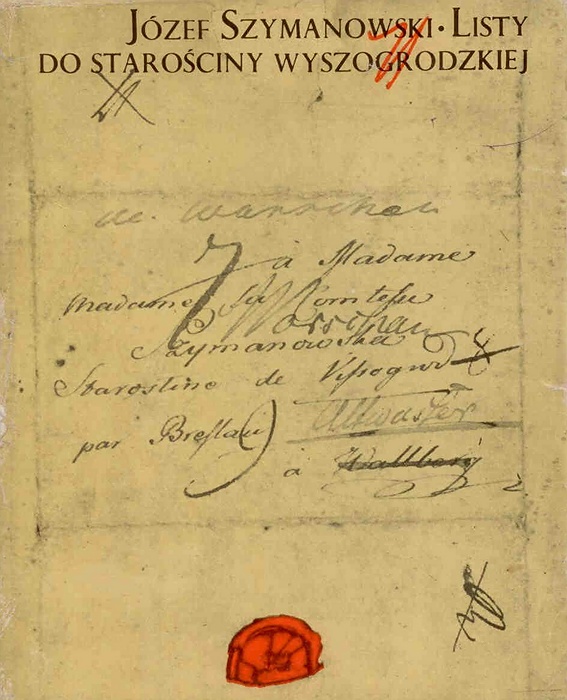 JÓZEF SZYMANOWSKI · LISTY
DO STAROŚCINY WYSZOGRODZKIEJ
de Warschau
à Madame
Madame La Comtesse
Warschau
Szymanowska
Starostine de
par Breslau
Altwasser
à